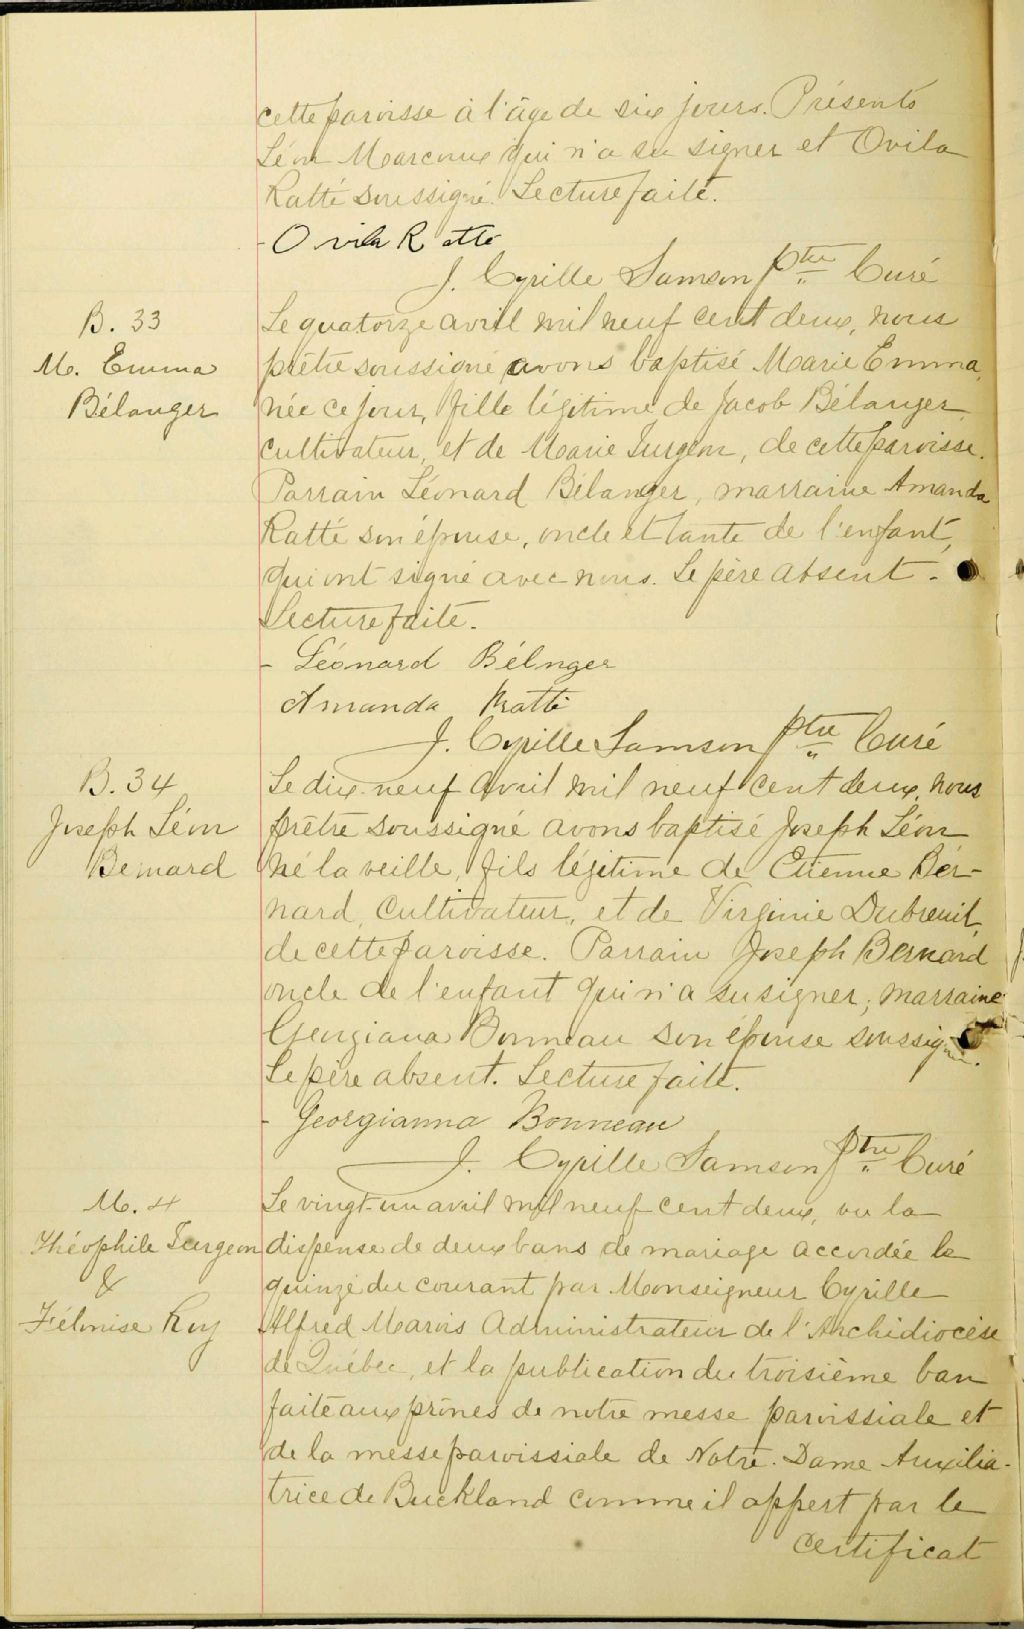 cette paroisse à l'âge de six jours. Présents
Léon Marcoux qui n'a su signer et Ovila
Ratté soussigné. Lecture faite.
- Ovila Ratté
J. Cyrille Samson Ptre Curé
B. 33
M. Emma
Bélanger
Le quatorze avril mil neuf cent deux, nous
prêtre soussigné avons baptisé Marie Emma,
née ce jour, fille légitime de Jacob Bélanger
cultivateur, et de Marie Turgeon, de cette paroisse.
Parrain Léonard Bélanger, marraine Amanda
Ratté son épouse, oncle et tante de l'enfant,
qui ont signé avec nous. Le père absent.
Lecture faite.
- Léonard Bélnger
Amanda Ratté
J. Cyrille Samson ptre Curé
B. 34
Joseph Léon
Bernard
Le dix-neuf avril mil neuf cent deux, nous
prêtre soussigné avons baptisé Joseph Léon
né la veille, fils légitime de Etienne Ber-
nard, cultivateur, et de Virginie Dubreuil,
de cette paroisse. Parrain Joseph Bernard
oncle de l'enfant qui n'a su signer; marraine
Georgiana Bonneau son épouse soussignée.
Le père absent. Lecture faite.
- Georgianna Bonneau
J. Cyrille Samson Ptre Curé
M. 4
Théophile Turgeon
&
Félonise Roy
Le vingt-un avril mil neuf cent deux, vu la
dispense de deux bans de mariage accordée le
quinze du courant par Monseigneur Cyrille
Alfred Marois Administrateur de l'Archidiocèse
de Québec, et la publication du troisième ban
faite aux prônes de notre messe paroissiale et
de la messe paroissiale de Notre-Dame Auxilia-
trice de Buckland comme il appert par le
certificat